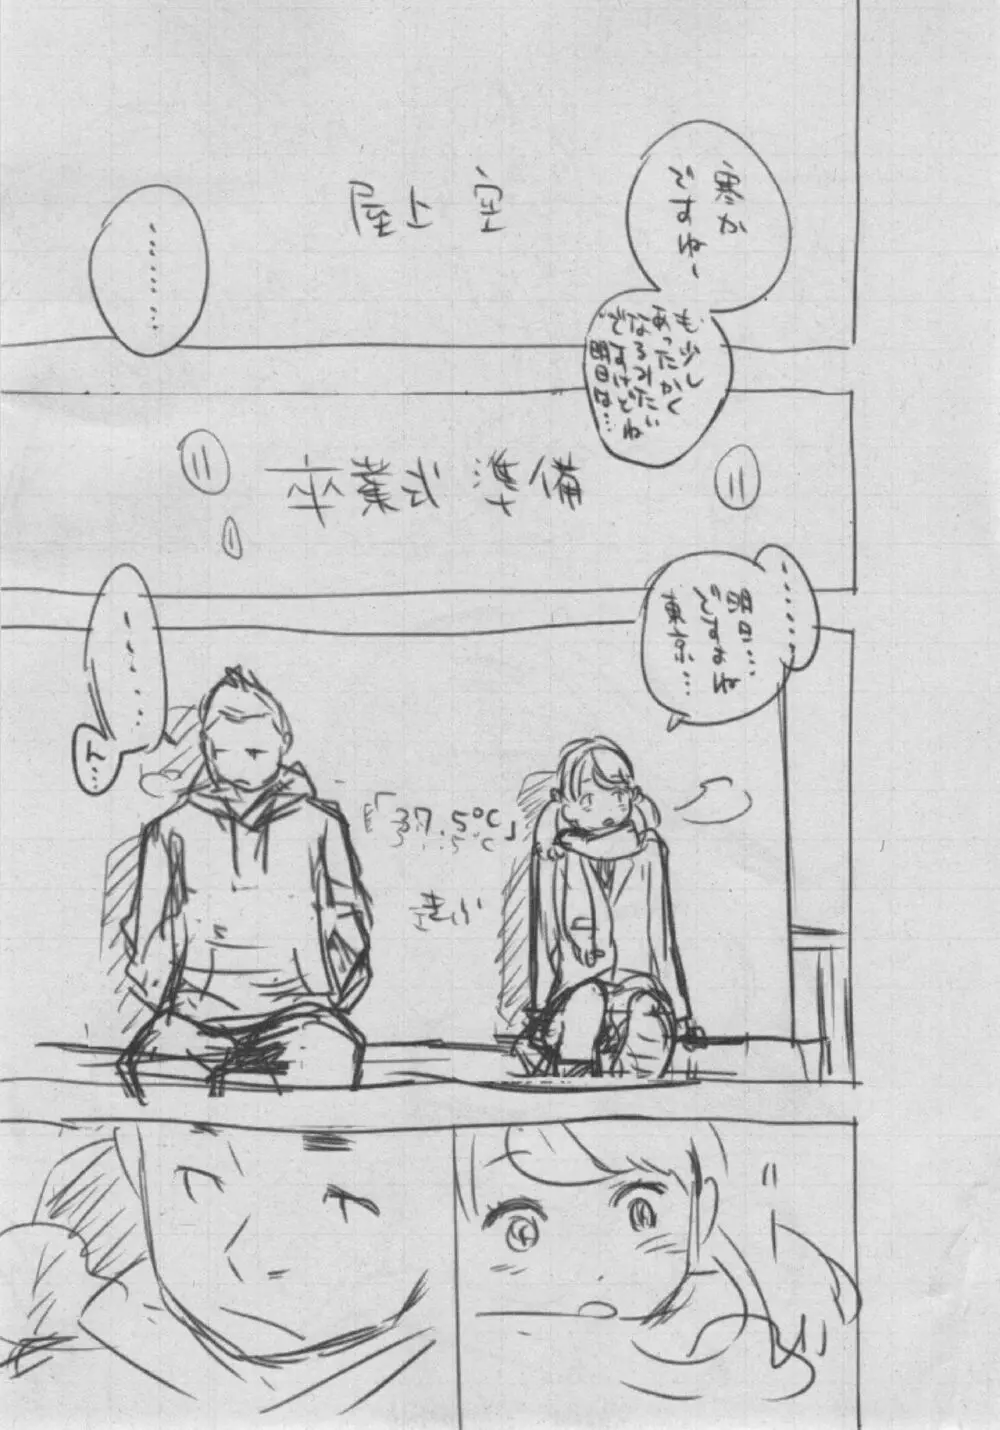 寒か
ですねー
も少し
あったかく
なるみたい
ですけどね
明日は…
………
空
屋上
卒業式 準備
………
明日…
ですね
東京…
………
ん…
「37.5℃」